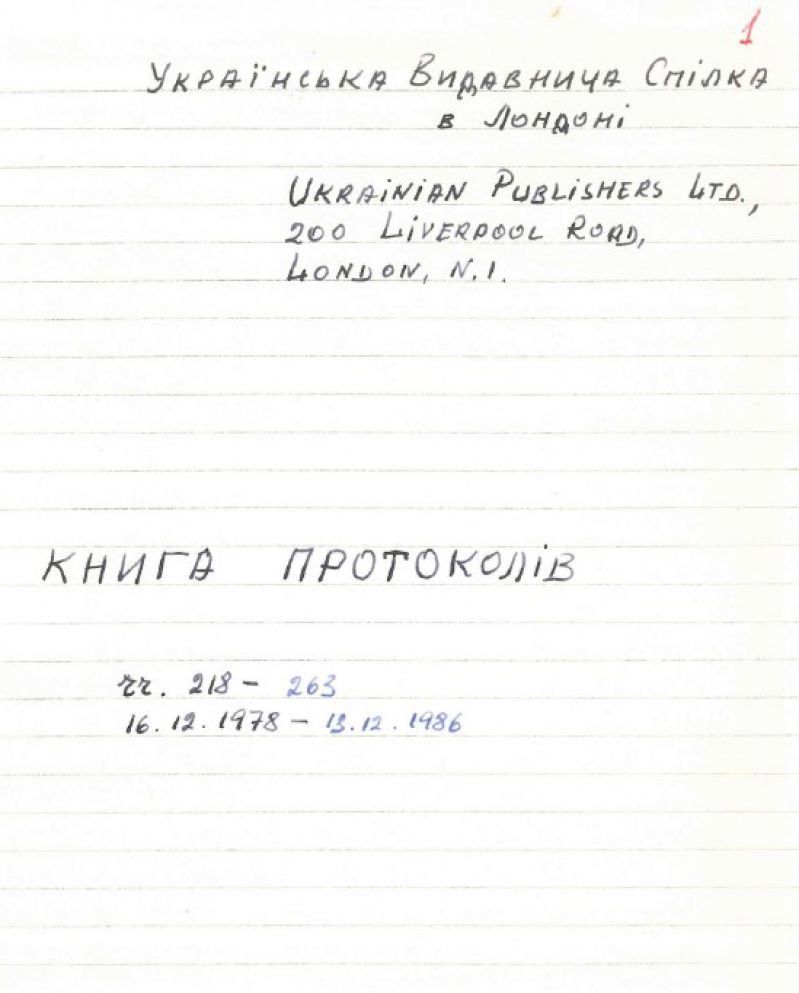 1
Українська Видавнича Спілка
в Лондоні
Ukrainian Publishers Ltd.,
200 Liverpool Road,
London, N.1.
КНИГА ПРОТОКОЛІВ
чч. 218 – 263
16.12.1978 – 13.12.1986